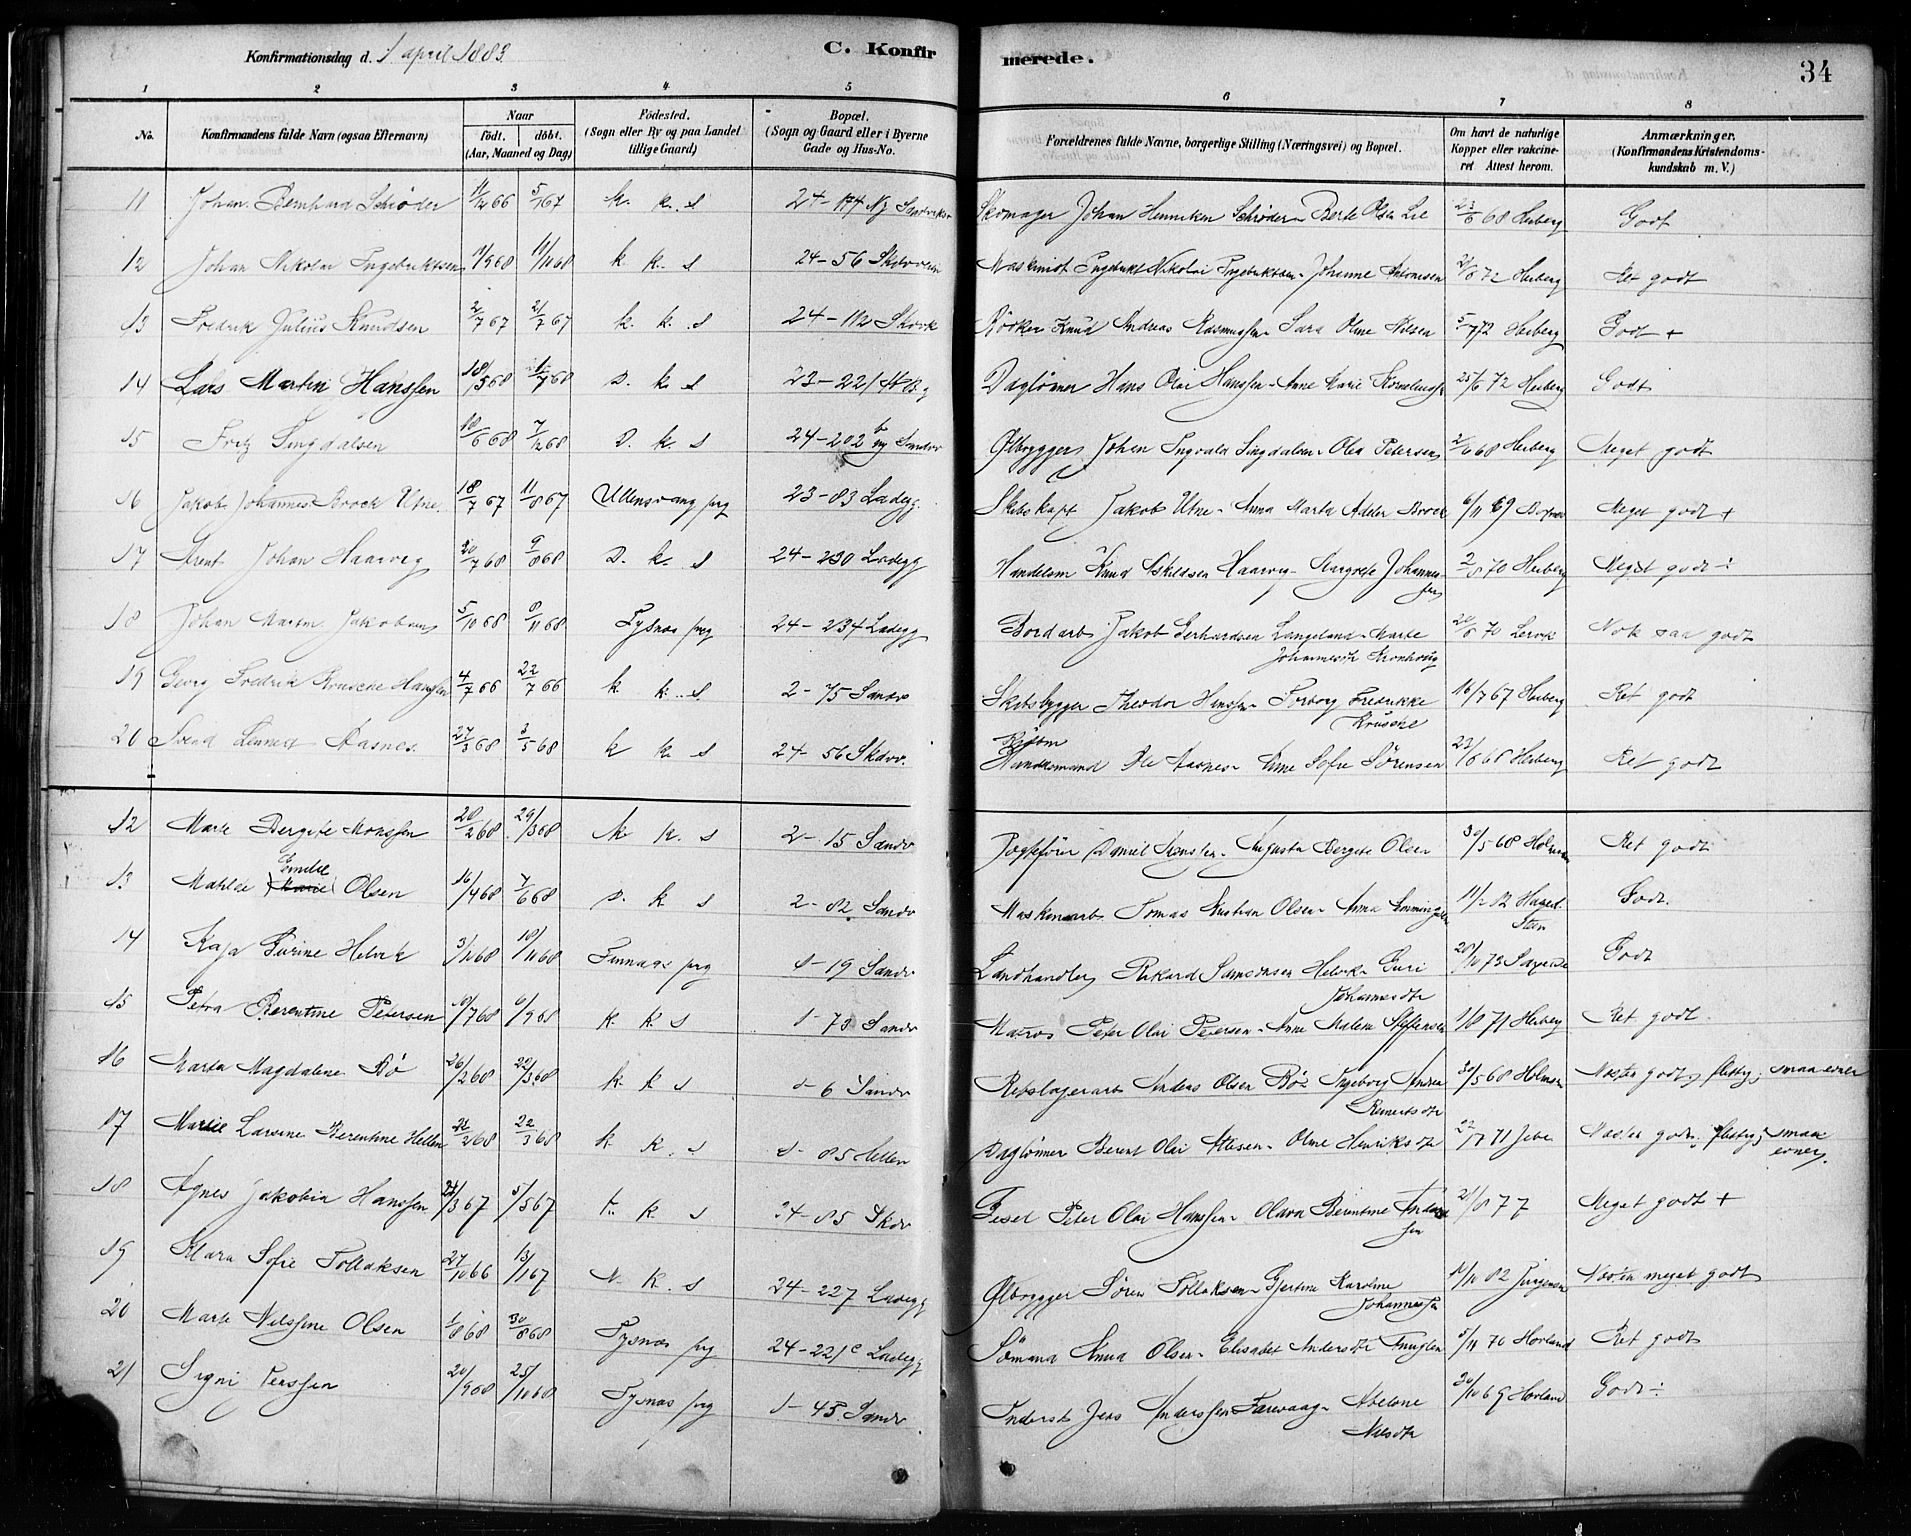 Konfirmationsdag d. 1 april 1883.
C. Konfirmerede.
34
1 2 3 4 5 6 7 8
No.
Konfirmandens fulde Navn (ogsaa Efternavn)
Naar
født. døbt.
(Aar, Maaned og Dag)
Fødested.
(Sogn eller By og paa Landet tillige Gaard)
Bopæl.
(Sogn og Gaard eller i Byerne Gade og Hus-No.
Forældrenes fulde Navne, borgerlige Stilling (Næringsvei) og Bopæl.
Om havt de naturlige Kopper eller vakcineret Attest herom.
Anmærkninger.
(Konfirmandens Kristendomskundskab m. V.)
11 Johan Bernhard Schrøder 11/12 66 5/1 67 k. k. s 24-174 Ny Sandviksv Skomager Johan Henriken Schrøder - Berte Olsen 23/6 68 Herberg Godt
12 Johan Nikolai Ingebriktsen 1/9 68 11/10 68 k. k. s 24-56 Ingebrikt Nikolai Ingebriktsen - Johanne Antonisen 72 Herberg Ret godt
13 Fredrik Julius Knudsen 2/7 67 21/7 67 k. k. s 24-112 Skovv Knud Andreas Rasmussen - Sara Oline Nilsen 5/7 72 Herberg Godt +
14 Lars Martin Hanssen 18/5 68 68 D. k. s 23-221 Daglønner Hans Olai Hanssen - Anne Marie 25/6 72 Herberg Godt
15 Fritz Singdalsen 10/6 68 7/12 68 D. k. s 24-202 b ny Sandv Ølbrygger Johan Ingvald Singdalsen - Olea Petersen 2/6 68 Herberg Meget godt
16 Jakob Johannes Brock Utne. 18/7 67 11/8 67 Ullensvang prg 23-83 Ladegg. Skibskapt Jakob Utne - Anna Marta Adeler Brock 6/11 69 Meget godt +
17 Arent Johan Haarvig 20/7 68 9/8 68 D. k. s 24-230 Ladegg Handelsm Knud Haarvig - Margrete Johannessen 2/8 70 Herberg Meget godt ÷
18 Johan Martin Jakobsen 5/10 68 8/11 68 Tysnæs prg 24-234 Ladegg Bordarb Jakob Gerhardsen Langeland - Marte Johannesdtr 70 Nok saa godt
19 Georg Fredrik Krusche Hanssen 4/7 66 22/7 66 k k. s 2-75 Sandv Skibsbygger Theodor Hanssen - Torborg Fredrikke Krusche 16/7 67 Herberg Ret godt
20 Svend Lennert Aasnes 27/3 68 3/5 68 k k s 24-56 Skovv. Handelsmand Ole Aasnes - Anne Sofie Sørensen 68 Herberg Ret godt
12 Marte Bergite Monssen 20/2 68 29/3 68 k. k. s 2-15 Sandv Daniel - Augusta Bergite Olsen 30/5 68 Ret godt
13 Matilde Emilie Olsen 16/4 68 7/6 68 D. k. s 2-82 Sandv Maskinarb. Tomas Kristian Olsen - Anna 82 Godt.
14 Kaja Gurine Helvik 3/10 68 18/10 68 Finnaas prg 1-19 Sandv Landhandler Rikard Samsonsen Helvik - Guri Johannesdtr 73 Godt
15 Petra Berentine Petersen 8/7 68 6/9 68 k. k. s 1-73 Sandv Matros Peter Olai Petersen - Anne Malene Steffensen 1/8 71 Herberg Ret godt
16 Marta Magdalene Bø 26/2 68 22/3 68 k. k. s 1-6 Sandv Rebslagerarb Anders Olsen Bø - Ingeborg Andrea Reinertsdtr 30/5 68 Næsten godt, flittig, smaa evner
17 Marie Larsine Berentine Hellen 21/2 68 22/3 68 k. k. s 1-85 Hellen Daglønner Berent Olai - Oline Henriksdtr 71 Næsten godt, flittig; smaa evner.
18 Agnes Jakobia Hanssen 3 67 5/5 67 k. k. s 24-85 Skov Peter Olai Hanssen - Olava Berentine Andersen 21/8 77 Meget godt +
19 Klara Sofie Tollaksen 27/10 66 13/1 67 N. k. s 24-227 Ladegg Ølbrygger Søren Tollaksen - Gjertine Karoline Johannessen 82 Jürgensen Næsten meget godt
20 Marte Nilssine Olsen 1/8 68 30/8 68 Tysnæs prg 24-221 c Ladegg Sømand Olsen - Elisabet Andersdtr 5/11 70 Hovland Ret godt
21 Signi Jenssen 20/9 68 25/10 68 Tysnæs prg 1-45 Sandv Jens Anderssen - Abelone Nilsdtr 30/10 69 Hovland Godt ÷